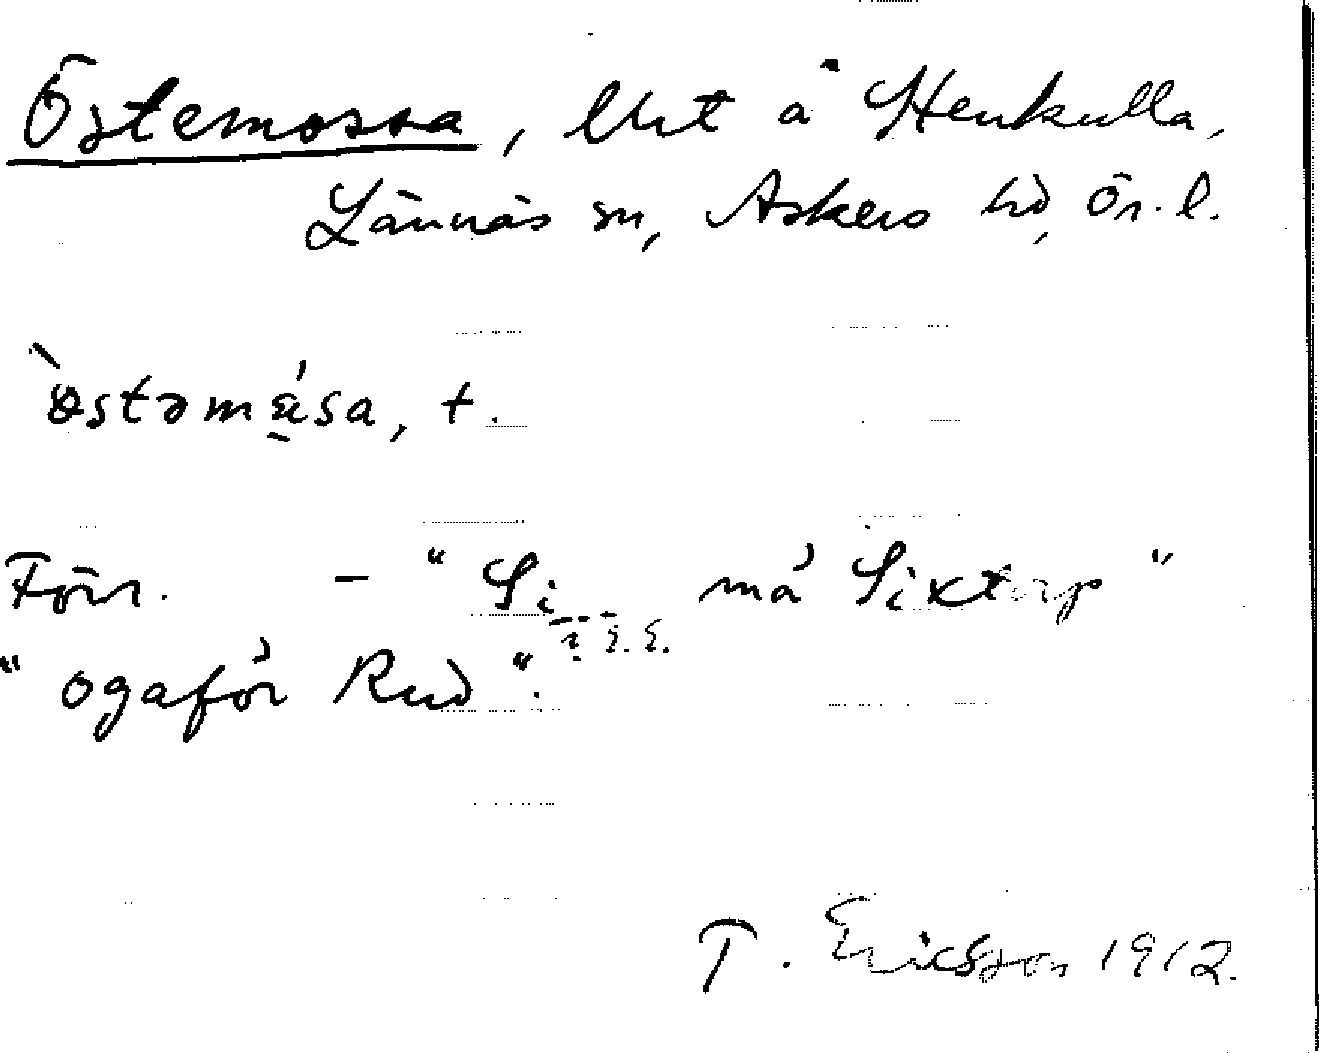 Östemossa, lht å Henkulla,
Lännäs sn, Askers hd, Ör. l.
òstəmása, f.
Förr. – " Si må Sixtorp "
" ogaför Rud ".
T. Ericsson 1912.